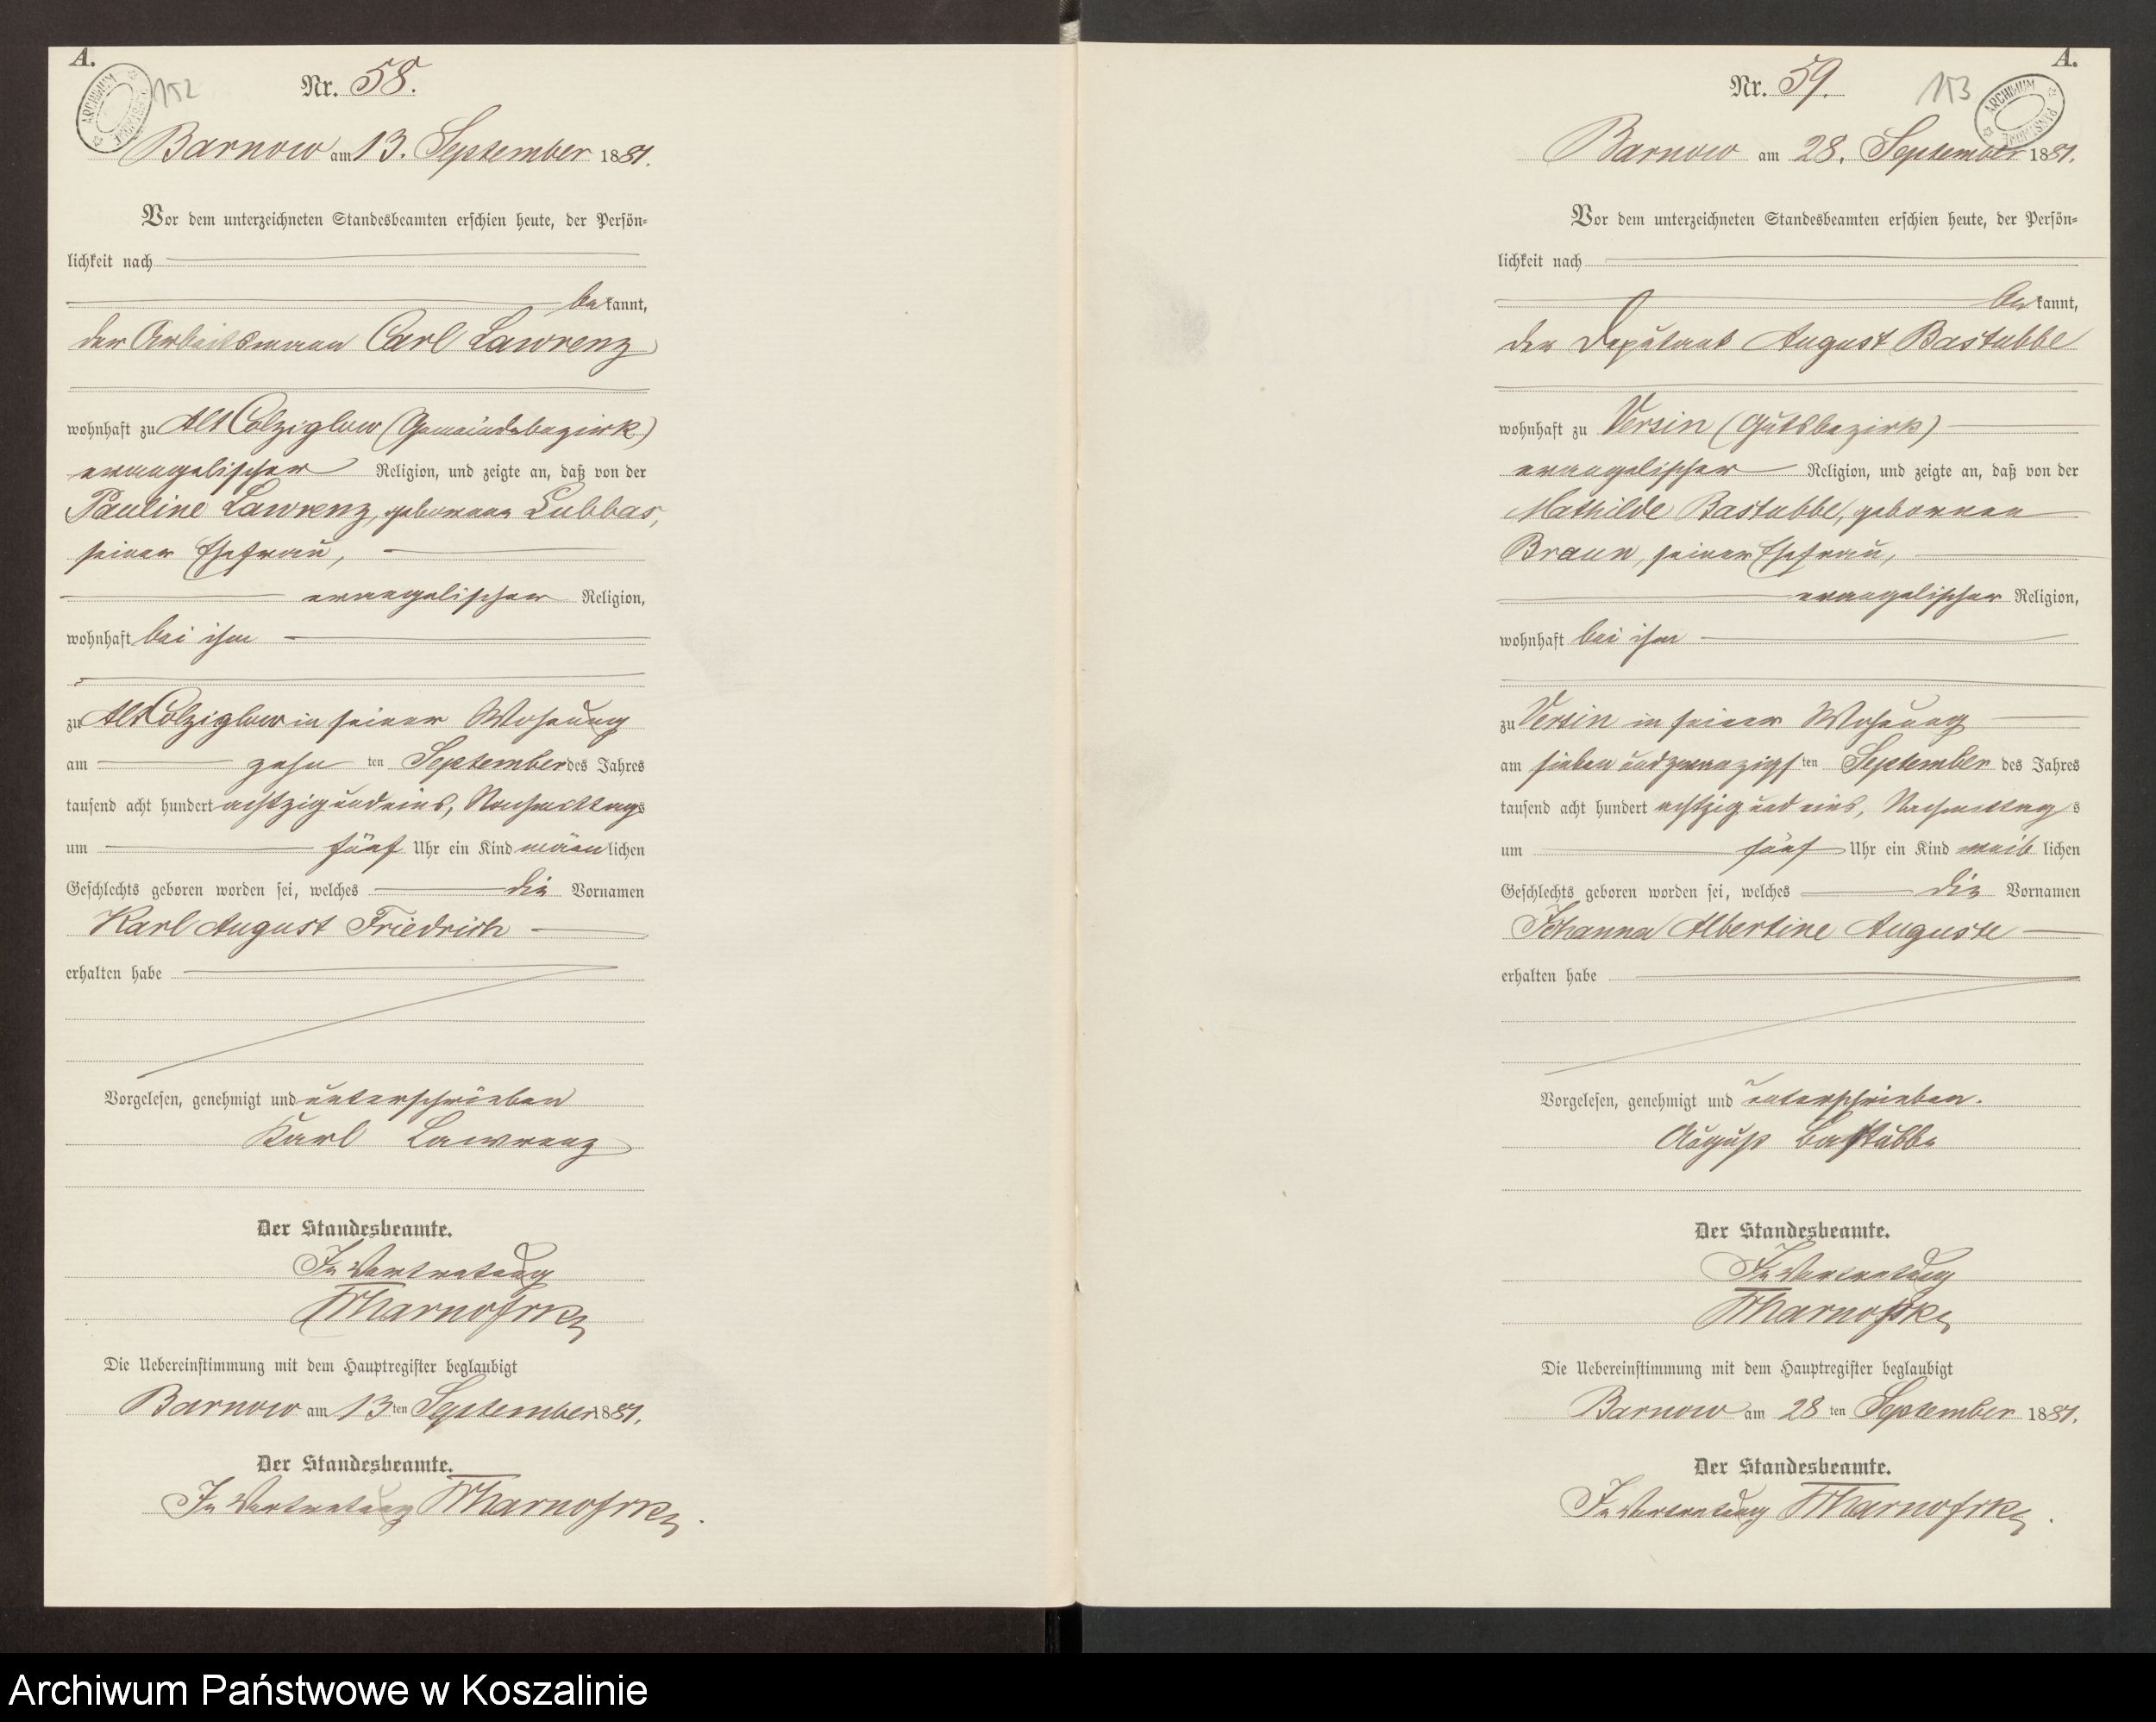 A.
ARCHIWUM PAŃSTWOWE
152
Nr. 58.
Barnow am 13. September 1881.
Vor dem unterzeichneten Standesbeamten erschien heute, der Persön-
lichkeit nach
bekannt,
der Arbeitsmann Carl Lawrenz
wohnhaft zu Alt Colziglow (Gemeindebezirk)
evangelischer Religion, und zeigte an, daß von der
Pauline Lawrenz, geborenen Lubbas,
seiner Ehefrau,
evangelischer Religion,
wohnhaft bei ihm
zu Alt Colziglow in seiner Wohnung
am zehn ten September des Jahres
tausend acht hundert achtzig und eins, Nachmittags
um fünf Uhr ein Kind männlichen
Geschlechts geboren worden sei, welches die Vornamen
Karl August Friedrich
erhalten habe
Vorgelesen, genehmigt und unterschrieben
Karl Lawrenz
Der Standesbeamte.
In Vertretung
Die Uebereinstimmung mit dem Hauptregister beglaubigt
Barnow am 13ten September 1881.
Der Standesbeamte.
In Vertretung
A.
153
ARCHIWUM PAŃSTWOWE
Nr. 59.
Barnow am 28. September 1881.
Vor dem unterzeichneten Standesbeamten erschien heute, der Persön-
lichkeit nach
bekannt,
der Deputant August Bastubbe
wohnhaft zu Versin (Gutsbezirk)
evangelischer Religion, und zeigte an, daß von der
Mathilde Bastubbe, geborenen
Braun, seiner Ehefrau,
evangelischer Religion,
wohnhaft bei ihm
zu Versin in seiner Wohnung
am sieben und zwanzigsten September des Jahres
tausend acht hundert achtzig und eins, Nachmittags
um fünf Uhr ein Kind weiblichen
Geschlechts geboren worden sei, welches die Vornamen
Johanna Albertine Auguste
erhalten habe
Vorgelesen, genehmigt und unterschrieben.
August Bastubbe
Der Standesbeamte.
In Vertretung
Die Uebereinstimmung mit dem Hauptregister beglaubigt
Barnow am 28ten September 1881.
Der Standesbeamte.
In Vertretung
Archiwum Państwowe w Koszalinie